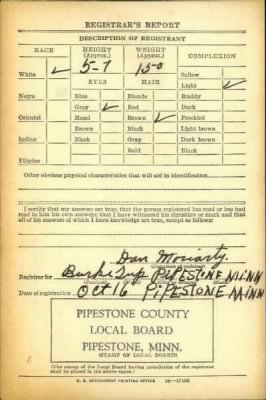 REGISTRAR'S REPORT
DESCRIPTION OF REGISTRANT
RACE HEIGHT (Approx.) WEIGHT (Approx.) COMPLEXION
White ✓ 5-7 150 Sallow
EYES HAIR Light ✓
Negro Blue Blonde Ruddy
Gray ✓ Red Dark
Oriental Hazel Brown ✓ Freckled
Brown Black Light brown
Indian Black Gray Dark brown
Bald Black
Filipino
Other obvious physical characteristics that will aid in identification
I certify that my answers are true; that the person registered has read or has had
read to him his own answers; that I have witnessed his signature or mark and that
all of his answers of which I have knowledge are true, except as follows:
Dan Moriarty
Registrar for Burke Twp PIPESTONE MINN
Date of registration Oct 16 PIPESTONE MINN
PIPESTONE COUNTY
LOCAL BOARD
PIPESTONE, MINN.
(STAMP OF LOCAL BOARD)
(The stamp of the Local Board having jurisdiction of the registrant
shall be placed in the above space.)
U. S. GOVERNMENT PRINTING OFFICE